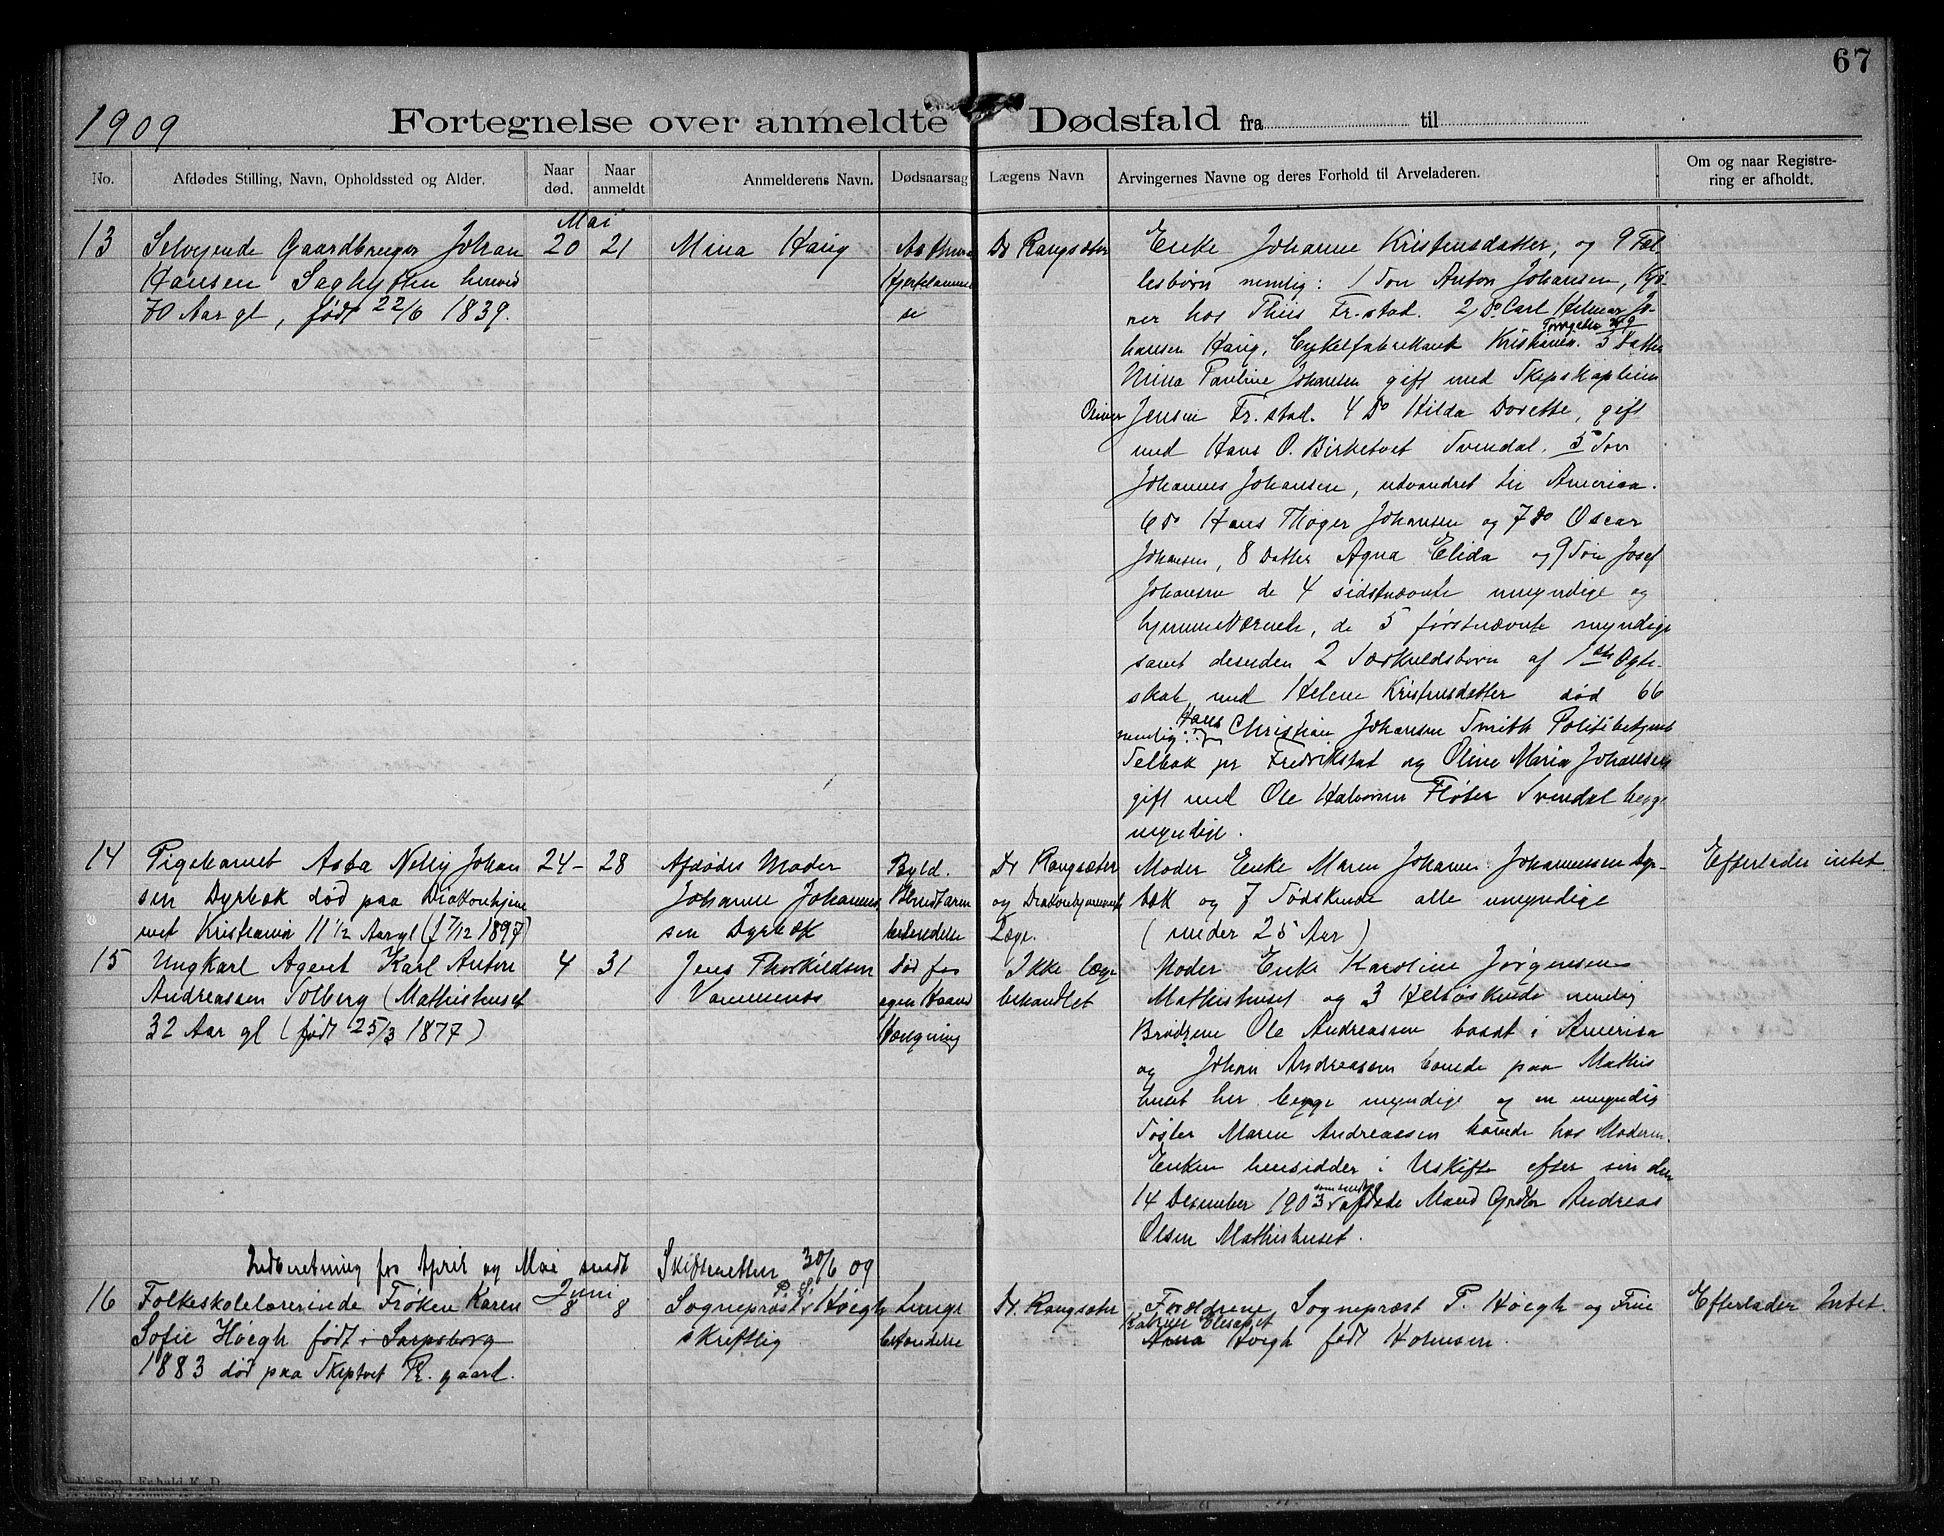 67
1909
Fortegnelse over anmeldte Dødsfald fra til
No.
Afdødes Stilling, Navn, Opholdssted og Alder.
Naar død.
Naar anmeldt
Anmelderens Navn.
Dødsaarsag
Lægens Navn
Arvingernes Navne og deres Forhold til Arveladeren.
Om og naar Registre-
ring er afholdt.
Mai
13 Selvejende Gaardbruger Johan
Hansen Saghytten herved
70 Aar gl, født 22/6 1839.
20 21
Mina Haug
Asthma
Hjertelammel
se
Dr Rangsæter
Enke Johanne Kristensdatter, og 9 Fæl
lesbørn nemlig: 1 Søn Anton Johansen, Kjø
rer hos Thiis Fr.stad. 2 Do Carl Hilmar Jo-
hansen Haug, Cykelfabrikant Kristiania. Torvgaden 3 Datter
Mina Pauline Johansen gift med Skipskaptein
Oliver Jensen Fr.stad. 4 Do Hilda Dorette, gift
med Hans O. Birketvet Svendal. 5 Søn
Johannes Johansen, udvandret til America.
6 Do Hans Thøger Johansen og 7 Do Oscar
Johansen, 8 Datter Agna Elida og 9 Søn Josef
Johansen de 4 sidstnævnte umyndige og
hjemmeværende, de 5 førstnævnte myndige
samt desuden 2 Særkuldsbørn af 1ste Ægte-
skab med Helene Kristensdatter død 66
nemlig: Hans Christian Johansen Smith Politibetjent
Selbak pr Fredrikstad og Oline Maria Johansen
gift med Ole Halvorsen Fløter Svendal begge
myndige.
14 Pigebarnet Asba Nelly Johan
sen Dyrbæk død paa Diakonhjem
met Kristiania 11 1/2 Aar gl (f 7/12 1897)
24 - 28
Afdødes Moder
Johanne Johannes
sen Dyrbæk
Byld.
Blindtarm
betendelse
Dr Rangsæter
og Diakonhjemmets
Læge.
Moder Enke Maren Johanne Johannessen Dyr
bæk og 7 Sødskende alle umyndige
(under 25 Aar)
Efterlader intet
15 Ungkarl Agent Karl Anton
Andreassen Solberg (Mathishuset
32 Aar gl (født 25/3 1877)
4 31
Jens Thorkildsen
Vammenes
Død for
egen Haand
Hængning
Ikke læge
behandlet
Moder Enke Karoline Jørgensen
Mathishuset og 3 Helsøskende nemlig
Brødrene Ole Andreassen bosat i America
og Johan Andreassen boende paa Mathis
huset her begge myndige og en umyndig
Søster Maren Andreassen boende hos Moderen.
Enken hensidder i Uskifte efter sin den
14 Desember 1903 afdøde Mand Grdbr Andreas
Olsen Mathishuset.
Indberetning for April og Mai sendt Skifteretten 30/6 09
Juni
16 Folkeskolelærerinde Frøken Karen
Sofie Höegh født i Sarpsborg
1883 død paa Skiptvet Pr. gaard.
8 8
Sognepræst P. S. Höegh
skriftlig
Lunge
betændelse
Dr. Rangsæter
Forældrene, Sognepræst P. Höegh og Frue
Katrine Elisabet
Anna Höegh født Holmsen.
Efterlader Intet.